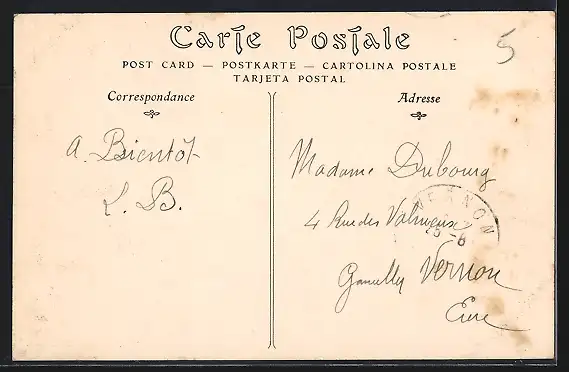 Carte Postale
5
POST CARD — POSTKARTE — CARTOLINA POSTALE
TARJETA POSTAL
Correspondance
Adresse
A. Bientôt
L. B.
Madame Dubourg
4 Rue des
VERNON
Vernon
Eure